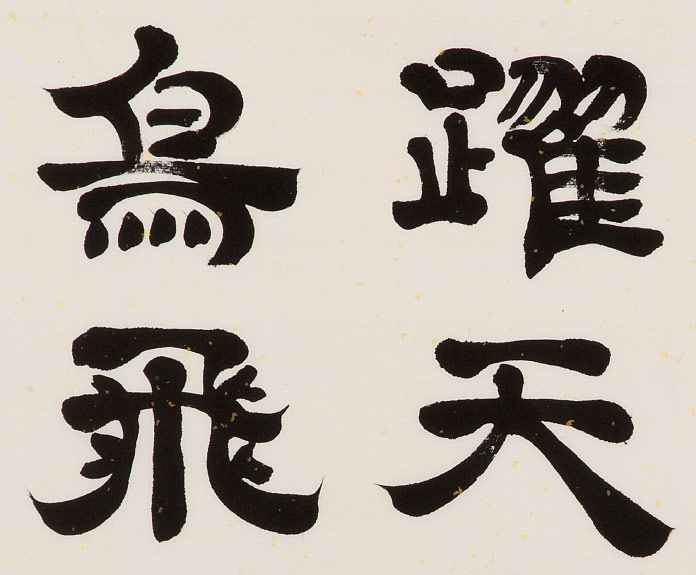 躍天
鳥飛